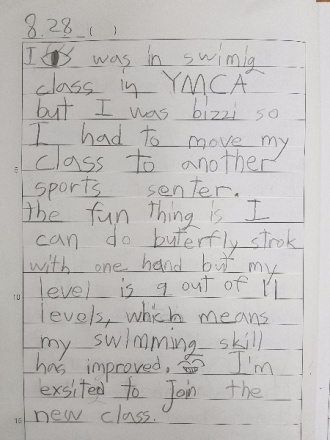 8.28 ( )
I was in swimlg
class in YMCA
but I was bizzi so
I had to move my
class to another
sports senter.
the fun thing is I
can do buterfly strok
with one hand but my
level is 9 out of 11
levels, which means
my swimming skill
has improved. I'm
exsited to join the
new class.